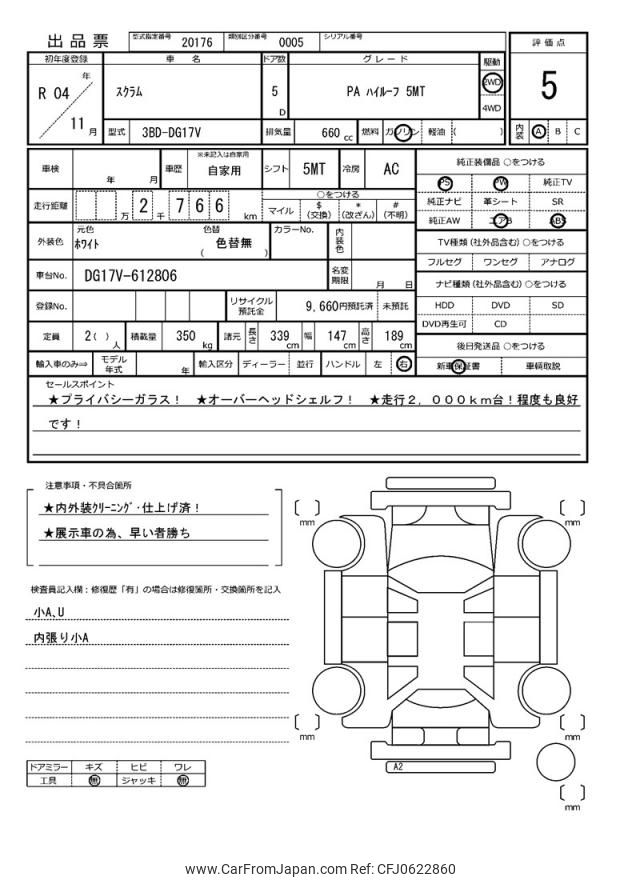 出品票 型式指定番号 20176 類別区分番号 0005 シリアル番号
評価点
5
内装 A B C
初年度登録 車名 ドア数 グレード 駆動
R 04 年 11 月 スクラム 5 D PA ハイルーフ 5MT 2WD 4WD
型式 3BD-DG17V 排気量 660 cc 燃料 ガソリン 軽油 ( )
車検 年 月 車歴 ※未記入は自家用 自家用 シフト 5MT 冷房 AC
走行距離 万 2 千 7 6 6 km ○をつける
マイル $ (交換) * (改ざん) # (不明)
外装色 元色 ホワイト 色替 色替無 ( ) カラーNo. 内装色
車台No. DG17V-612806 名変期限 月 日
登録No. リサイクル預託金 9,660円預託済 未預託
定員 2( ) 人 積載量 350 kg 諸元 長さ 339 cm 幅 147 cm 高さ 189 cm
輸入車のみ⇒ モデル年式 年 輸入区分 ディーラー 並行 ハンドル 左 右
純正装備品 ○をつける
PS PW 純正TV
純正ナビ 革シート SR
純正AW エアB ABS
TV種類(社外品含む) ○をつける
フルセグ ワンセグ アナログ
ナビ種類(社外品含む) ○をつける
HDD DVD SD
DVD再生可 CD
後日発送品 ○をつける
新車保証書 車輌取説
セールスポイント
★プライバシーガラス! ★オーバーヘッドシェルフ! ★走行2,000km台!程度も良好
です!
注意事項・不具合箇所
★内外装クリーニング・仕上げ済!
★展示車の為、早い者勝ち
検査員記入欄:修復歴「有」の場合は修復箇所・交換箇所を記入
小A、U
内張り小A
ドアミラー キズ ヒビ ワレ
工具 無 ジャッキ 無
mm
mm
mm
mm
mm
A2
www.CarFromJapan.com Ref: CFJ0622860